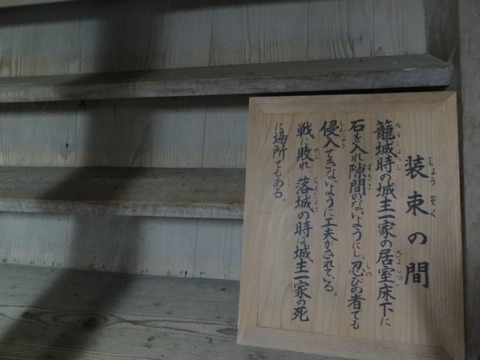 装束の間
籠城時の城主一家の居室床下に
石を入れ隙間のないようにし忍びの者でも
侵入できないように工夫がされている。
戦に敗れ落城の時は城主一家の死
に場所でもある。